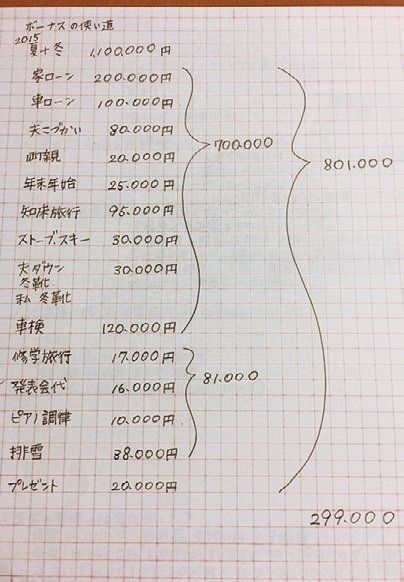 ボーナスの使い道
2015
夏+冬 1,100.000円
家ローン 200.000円
車ローン 100.000円
夫こづかい 80.000円
両親 20.000円
年末年始 25.000円
知床旅行 95.000円
ストーブ.スキー 30.000円
夫ダウン 30.000円
冬靴
私 冬靴
車検 120.000円
700.000
修学旅行 17.000円
発表会代 16.000円
ピアノ調律 10.000円
排雪 38.000円
81.000
プレゼント 20.000円
801.000
299.000